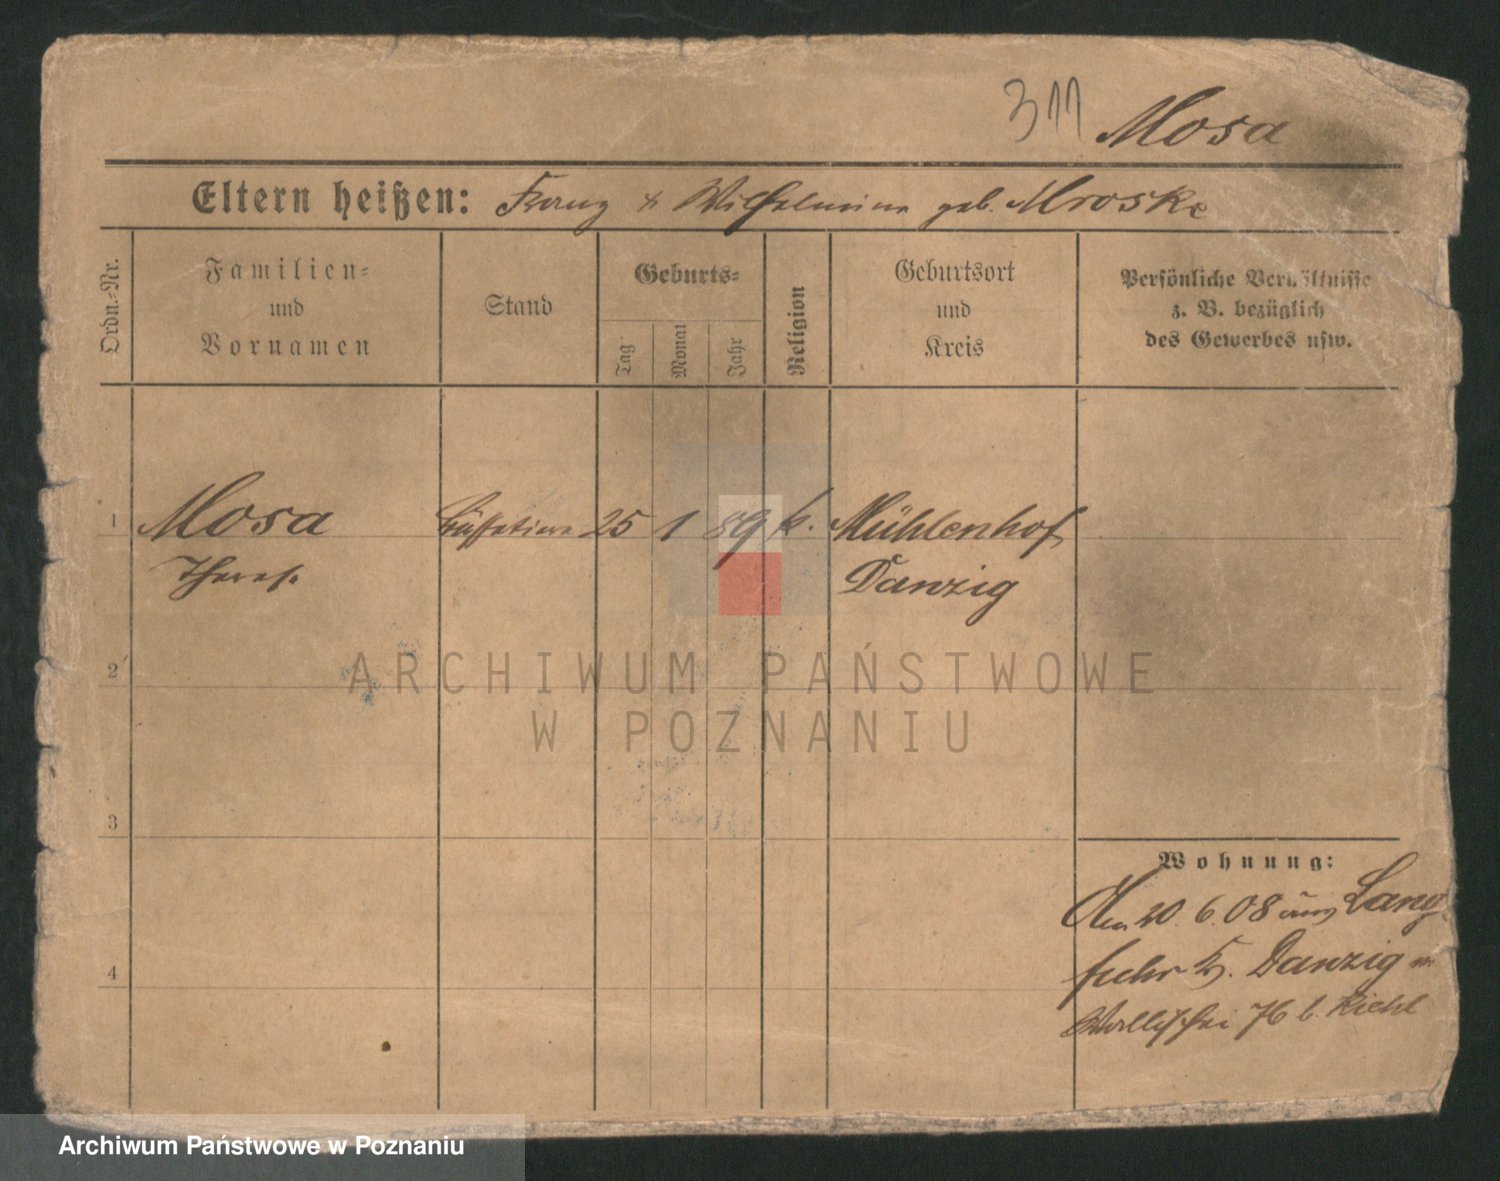 311 Mosa
Eltern heißen: Franz & Wilhelmine geb. Mroske
Ordn.-Nr.
Familien-
und
Vornamen
Stand
Geburts-
Tag
Monat
Jahr
Religion
Geburtsort
und
Kreis
Persönliche Verhältnisse
z. B. bezüglich
des Gewerbes usw.
1 Mosa 25 1 89 k. Mühlenhof
Danzig
2
ARCHIWUM PAŃSTWOWE
W POZNANIU
3
Wohnung:
Den 20.6.08 aus Lang-
fuhr Danzig
4
Wallischei 76 b. Riehl
Archiwum Państwowe w Poznaniu